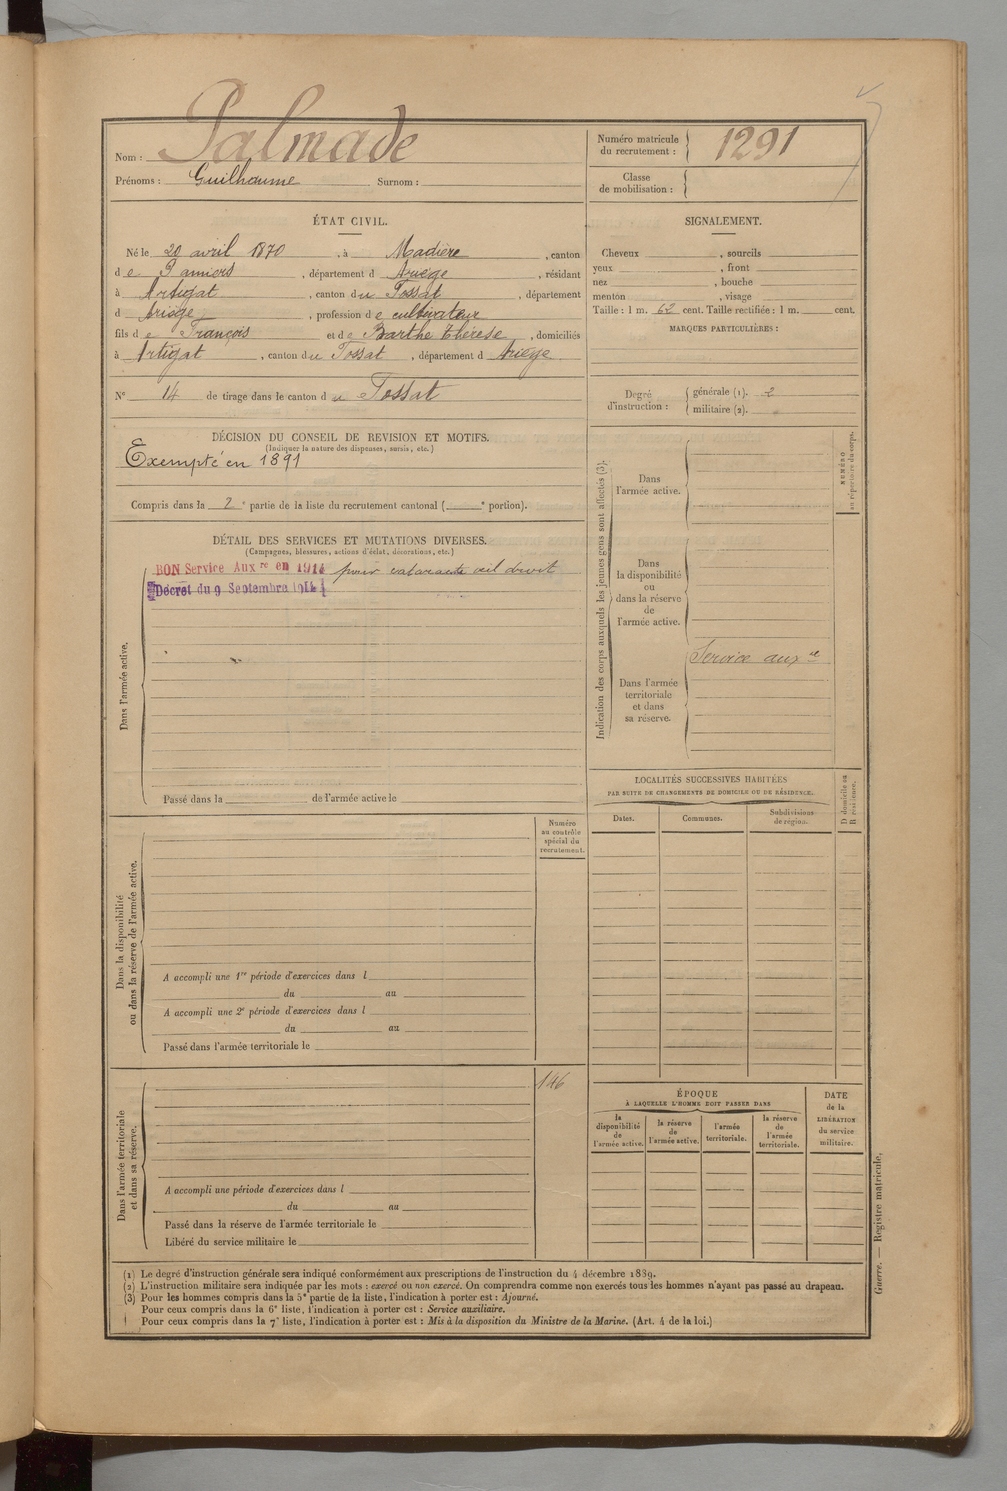 Nom : Palmade
Prénoms : Guilhaume Surnom :
Numéro matricule du recrutement : 1291
Classe de mobilisation :
ÉTAT CIVIL.
Né le 20 avril 1870, à Madière, canton
de Pamiers, département d Ariège, résidant
à Artigat, canton du Fossat, département
d Ariège, profession de cultivateur
fils de François et de Barthe Thérèse, domiciliés
à Artigat, canton du Fossat, département d Ariège
N° 14 de tirage dans le canton du Fossat
SIGNALEMENT.
Cheveux , sourcils
yeux , front
nez , bouche
menton , visage
Taille : 1 m. 62 cent. Taille rectifiée : 1 m. cent.
MARQUES PARTICULIÈRES :
Degré d'instruction :
générale (1). 2
militaire (2).
DÉCISION DU CONSEIL DE REVISION ET MOTIFS.
(Indiquer la nature des dispenses, sursis, etc.)
Exempté en 1891
Compris dans la 2e partie de la liste du recrutement cantonal ( e portion).
DÉTAIL DES SERVICES ET MUTATIONS DIVERSES.
(Campagnes, blessures, actions d'éclat, décorations, etc.)
BON Service Auxre en 1914 pour cataracte œil droit
Décret du 9 Septembre 1914
Dans l'armée active.
Passé dans la de l'armée active le
Indication des corps auxquels les jeunes gens sont affectés (3).
NUMÉRO au répertoire du corps.
Dans l'armée active.
Dans la disponibilité ou dans la réserve de l'armée active.
Service auxre
Dans l'armée territoriale et dans sa réserve.
LOCALITÉS SUCCESSIVES HABITÉES
PAR SUITE DE CHANGEMENTS DE DOMICILE OU DE RÉSIDENCE.
Dates. Communes. Subdivisions de région.
D domicile ou R résidence.
Numéro au contrôle spécial du recrutement.
Dans la disponibilité ou dans la réserve de l'armée active.
A accompli une 1re période d'exercices dans l
du au
A accompli une 2e période d'exercices dans l
du au
Passé dans l'armée territoriale le
146
Dans l'armée territoriale et dans sa réserve.
A accompli une période d'exercices dans l
du au
Passé dans la réserve de l'armée territoriale le
Libéré du service militaire le
ÉPOQUE
À LAQUELLE L'HOMME DOIT PASSER DANS
la disponibilité de l'armée active.
la réserve de l'armée active.
l'armée territoriale.
la réserve de l'armée territoriale.
DATE de la LIBÉRATION du service militaire.
(1) Le degré d'instruction générale sera indiqué conformément aux prescriptions de l'instruction du 4 décembre 1889.
(2) L'instruction militaire sera indiquée par les mots : exercé ou non exercé. On comprendra comme non exercés tous les hommes n'ayant pas passé au drapeau.
(3) Pour les hommes compris dans la 5e partie de la liste, l'indication à porter est : Ajourné.
Pour ceux compris dans la 6e liste, l'indication à porter est : Service auxiliaire.
Pour ceux compris dans la 7e liste, l'indication à porter est : Mis à la disposition du Ministre de la Marine. (Art. 4 de la loi.)
Guerre. — Registre matricule.